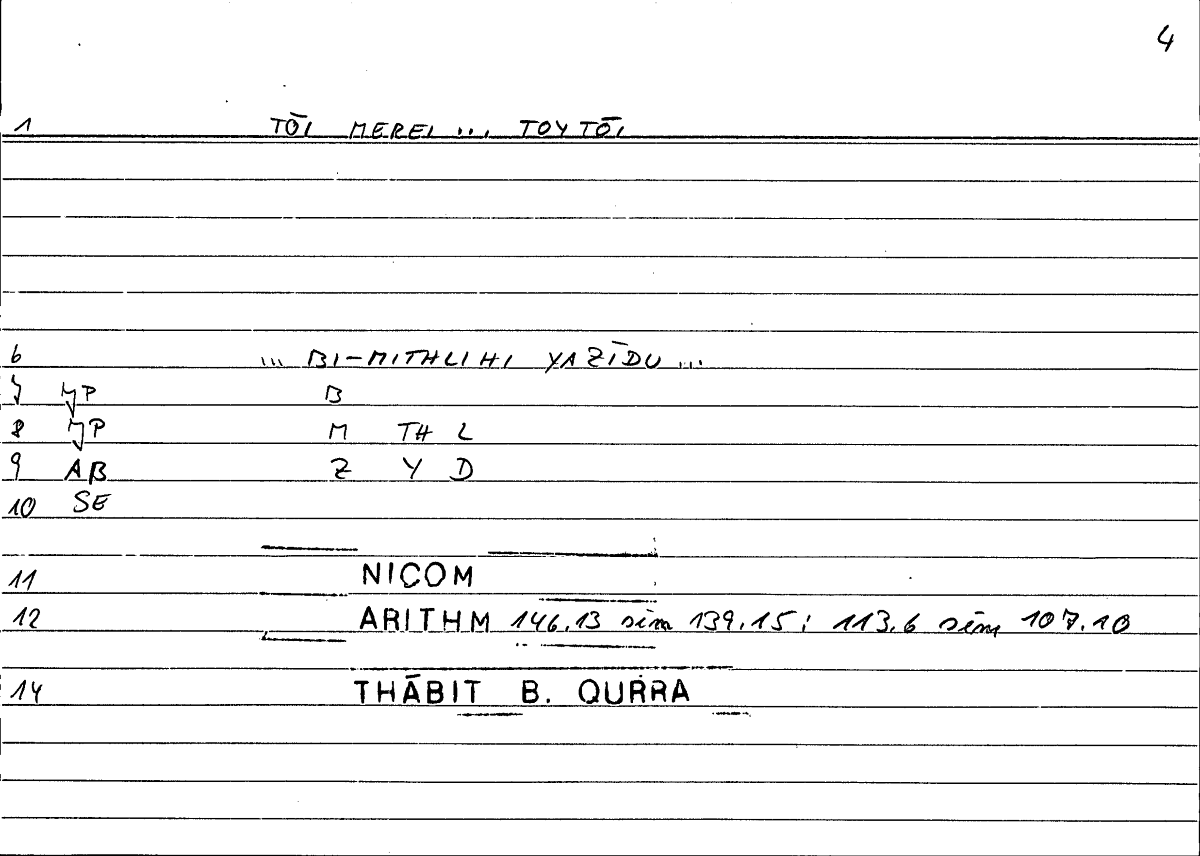 4
1 TŌI MEREI ... TOYTŌI
6 ... BI-MITHLIHI YAZĪDU ...
7 MP B
8 MP M TH L
9 AB Z Y D
10 SE
11 NICOM
12 ARITHM 146.13 sim 139.15; 113.6 sim 107.10
14 THĀBIT B. QURRA